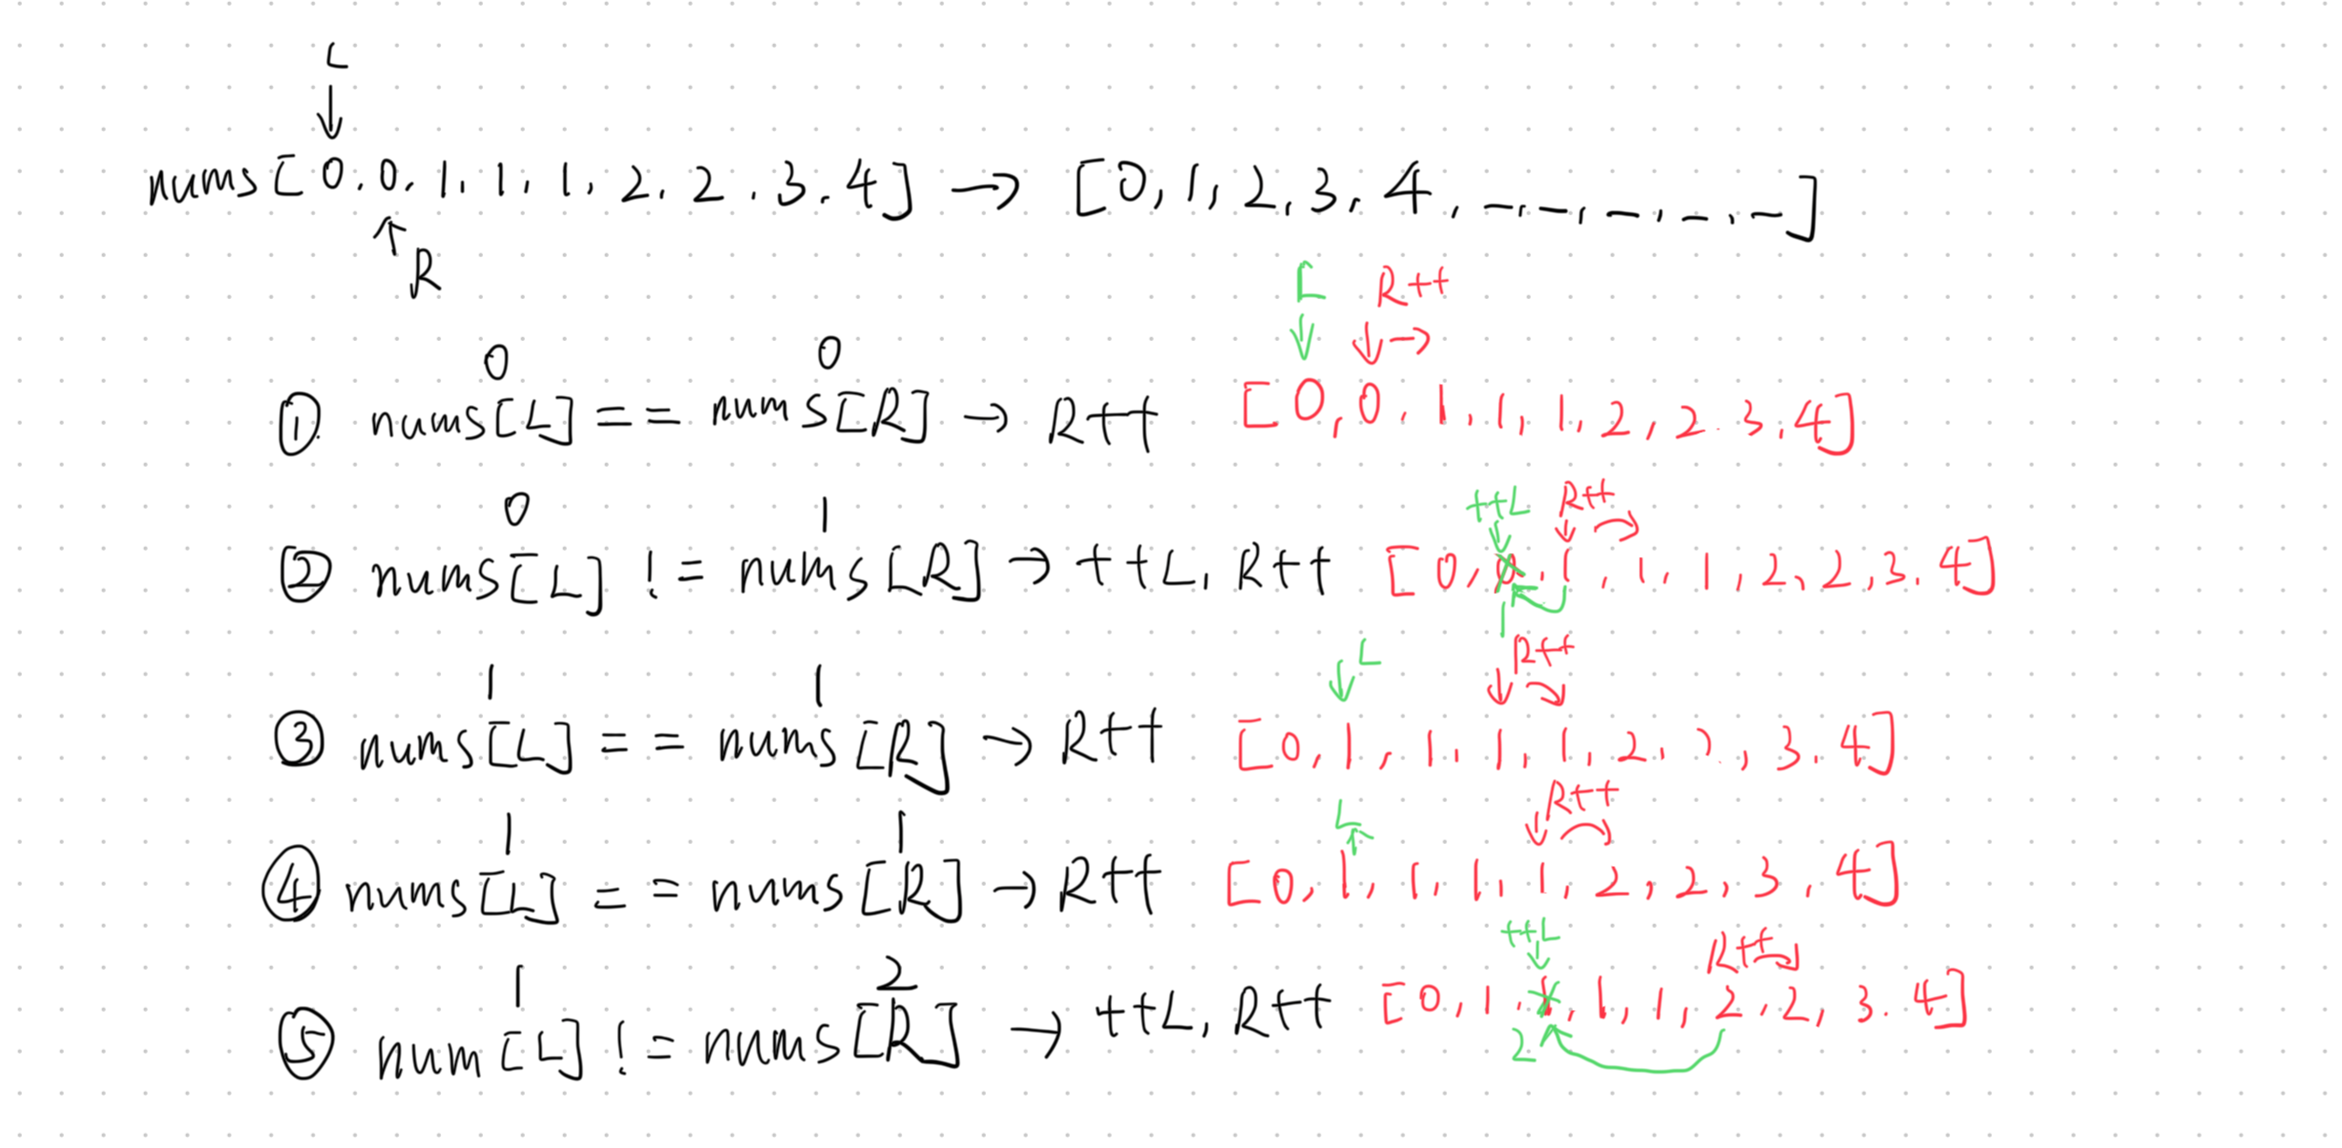 L
nums[0,0,1,1,1,2,2,3,4] → [0,1,2,3,4,_,_,_,_,_]
R
L R++
0 0
① nums[L] == nums[R] → R++ [0,0,1,1,1,2,2,3,4]
++L R++
0 1
② nums[L] != nums[R] → ++L, R++ [0,0,1,1,1,2,2,3,4]
1
L R++
1 1
③ nums[L] == nums[R] → R++ [0,1,1,1,1,2,2,3,4]
L R++
1 1
④ nums[L] == nums[R] → R++ [0,1,1,1,1,2,2,3,4]
++L R++
1 2
⑤ num[L] != nums[R] → ++L, R++ [0,1,1,1,1,2,2,3,4]
2